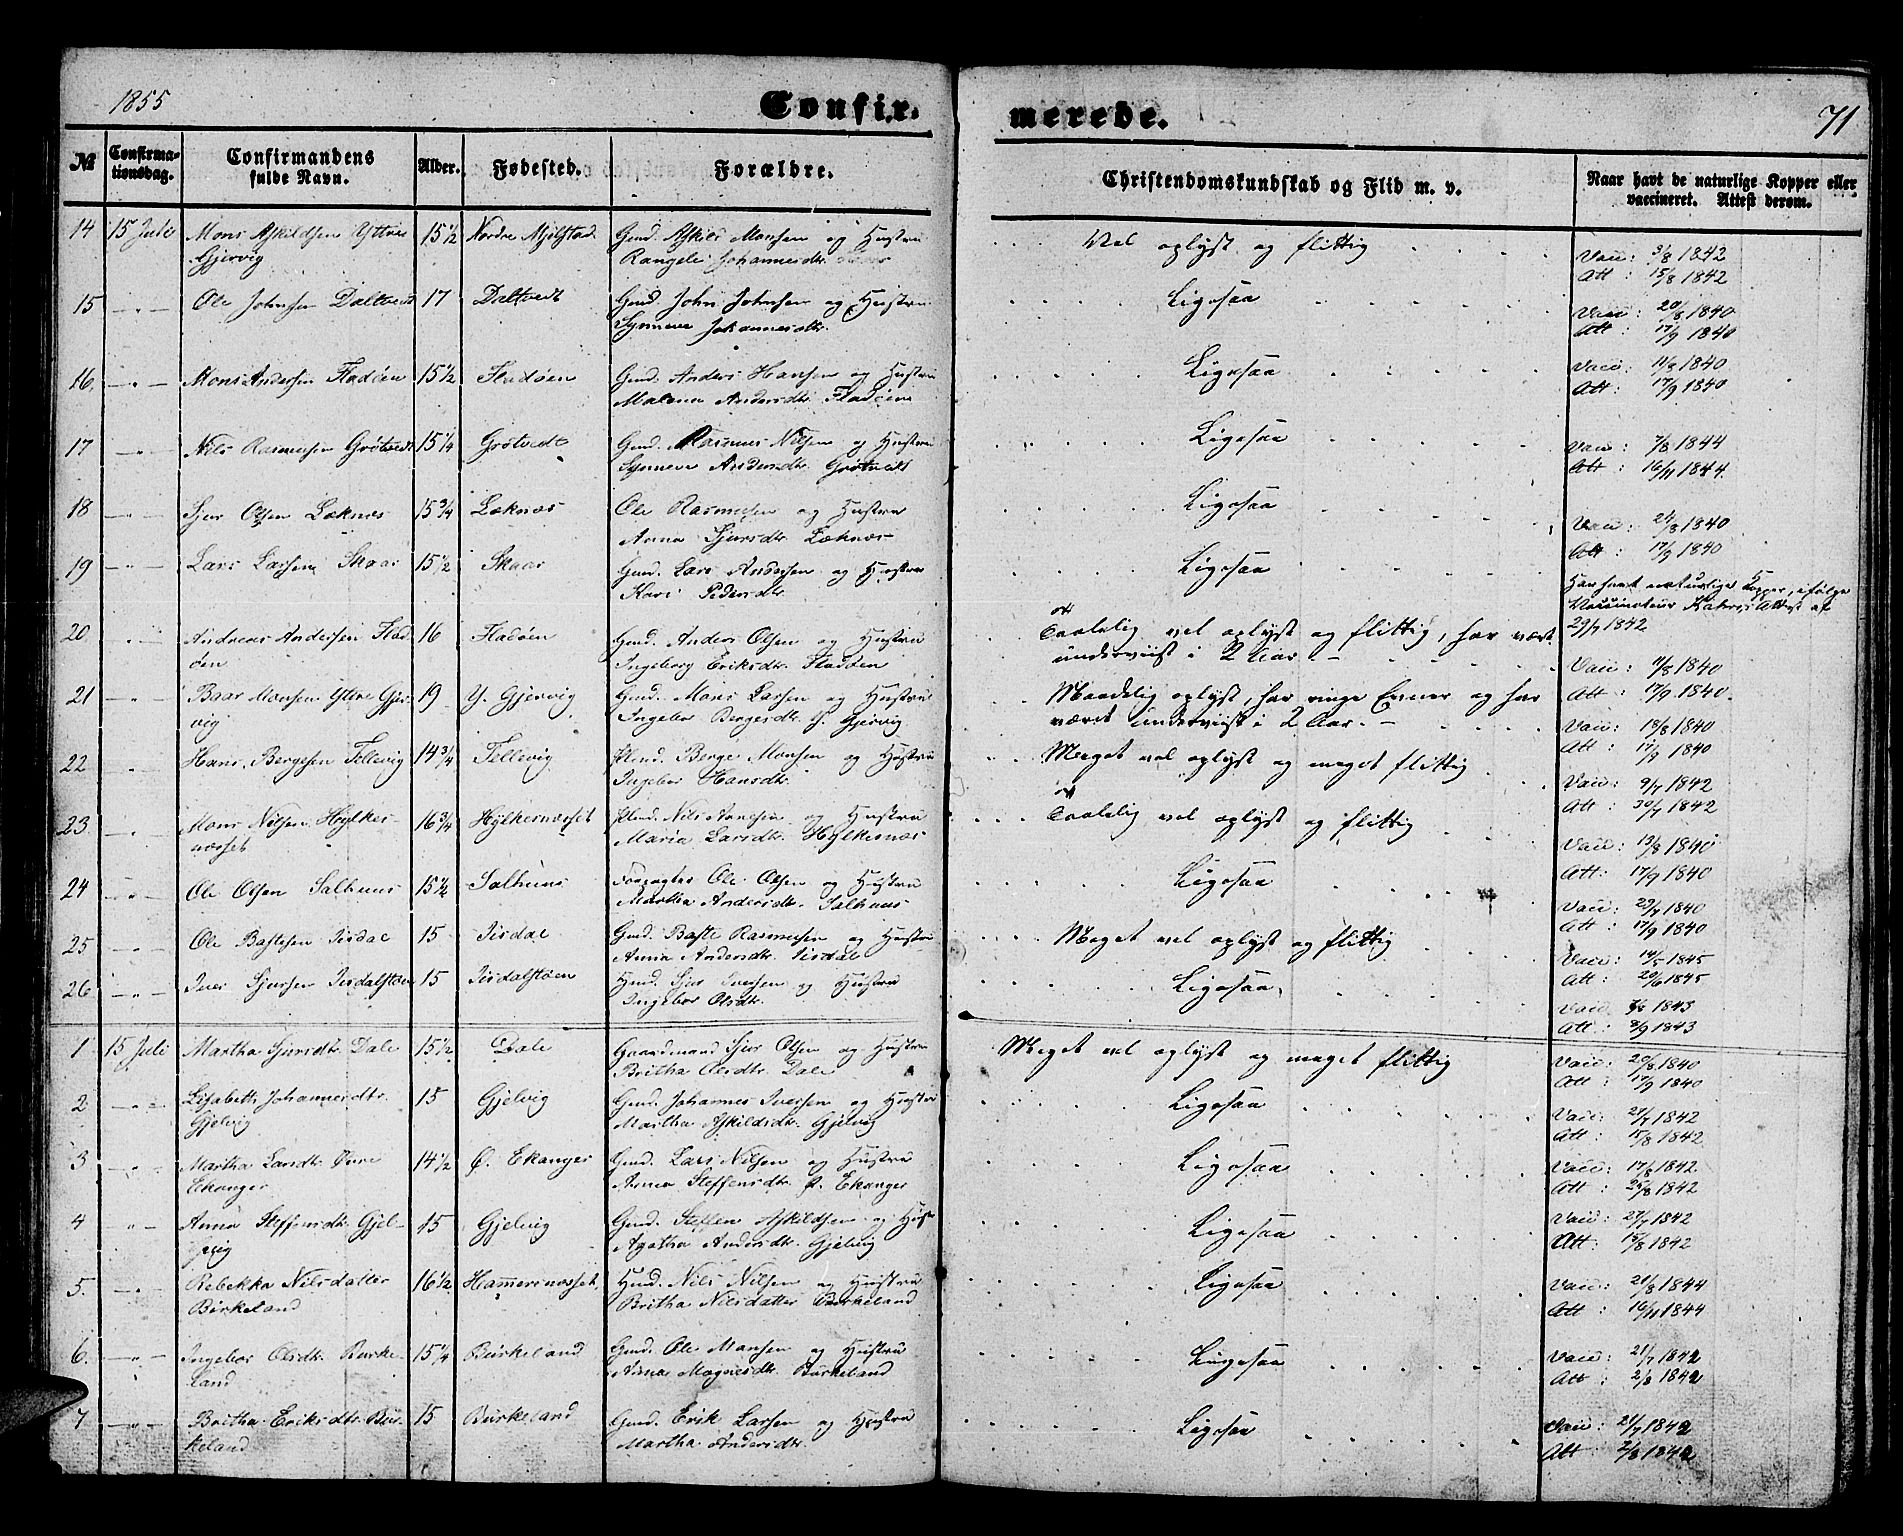 1855
Confir.
merede.
71
№
Confirma-
tionsdag.
Confirmandens
fulde Navn.
Alder.
Fødested.
Forældre.
Christendomskundskab og Flid m. v.
Naar havt de naturlige Kopper eller
vaccineret. Attest derom.
14 15 Juli Mons Askildsen Yttre 15 1/2 Nordre Mjelstad Gmd. Askild Monsen og Hustru Vel oplyst og flittig Vacc: 3/8 1842
Gjervig Rangele Johannesdtr. Att : 15/8 1842
15 -"- Ole Johnsen Daltvedt 17 Daltvedt Gmd. John Johnsen og Hustru Ligesaa Vacc: 20/8 1840
Synneve Johannesdtr. Att : 17/9 1840
16. -"- Mons Andersen Fladöen 15 1/2 Fladöen Gmd. Anders Hansen og Hustru Ligesaa Vacc: 11/8 1840
Malene Andersdtr. Fladöen Att : 17/9 1840
17 -"- Nils Rasmussen Grötvedt 15 1/4 Grötvedt Gmd. Rasmus Nilsen og Hustru Ligesaa Vacc: 7/8 1844
Synneve Andersdtr. Grötvedt Att : 16/11 1844.
18 -"- Sjur Olsen Leknes 15 3/4 Leknes Ole Rasmussen og Hustru Ligesaa Vacc: 24/8 1840
Anna Sjursdtr. Leknes Att : 17/9 1840
19 -"- Lars Larsen Skaar 15 1/2 Skaar Gmd. Lars Andersen og Hustru Ligesaa Har havt naturlige Kopper, ifølge
Kari Pedersdtr. Vaccinateur Attest af
29/7 1842
20 -"- Andreas Andersen Flad- 16 Fladöen Gmd. Anders Olsen og Hustru Taalelig vel oplyst og flittig, har vært Vacc: 11/8 1840
öen Ingeborg Eriksdtr. Fladöen underviist i 2 Aar. Att : 17/9 1840.
21 -"- Baar Monsen Yttre Gjer- 19 Y. Gjervig Gmd. Mons Larsen og Hustru Maadelig oplyst, har ringe Evner og har Vacc: 18/8 1840
vig Ingebor Bergesdtr. Y. Gjervig været underviist i 2 Aar. Att : 17/9 1840
22 -"- Hans Bergesen Tellevig 14 3/4 Tellevig Hmd. Berge Monsen og Hustru Meget vel oplyst og meget flittig Vacc: 9/7 1842
Ingebor Hansdtr. Att : 30/7 1842
23 -"- Mons Nilsen Hylkes- 16 3/4 Hylkernæsset Hmd. Nils Arnesen og Hustru Taalelig vel oplyst og flittig Vacc: 13/8 1840
næsset Maria Larsdtr. Hylkesnæs Att : 17/9 1840
24 -"- Ole Olsen Salhuus 15 1/2 Salhuus Forpagter Ole Olsen og Hustru Ligesaa Vacc: 29/7 1840
Martha Andersdtr. Salhuus Att : 17/9 1840
25 -"- Ole Bastesen Isdal 15 Isdal Gmd. Baste Rasmussen og Hustru Meget vel oplyst og flittig Vacc: 14/5 1845
Anna Andersdtr. Isdal Att : 20/6 1845
26 -"- Iver Sjursen Isdalstöen 15 Isdalstöen Hmd. Sjur Iversen og Hustru Ligesaa Vacc: 1843
Ingebor Olsdtr. Att : 2/9 1843
1 15 Juli Martha Sjursdtr. Dale 15 1/2 Dale Gaardmand Sjur Olsen og Hustru Meget vel oplyst og meget flittig Vacc: 20/8 1840
Britha Olsdtr. Dale Att : 17/9 1840
2 -"- Lisabeth Johannesdtr. 15 Gjelvig Gmd. Johannes Iversen og Hustru Ligesaa Vacc: 21/7 1842
Gjelvig Martha Askildsdtr. Gjelvig Att : 15/8 1842
3 -"- Martha Larsdtr. Övre 14 1/2 Ö. Ekanger Gmd. Lars Nilsen og Hustru Ligesaa Vacc: 17/8 1842
Ekanger Anna Steffensdtr. Ö. Ekanger Att : 25/8 1842
4 -"- Anna Steffensdtr. Gjel- 15 Gjelvig Gmd. Steffen Askildsen og Hustr Ligesaa Vacc: 27/7 1842
vig Agatha Andersdtr. Gjelvig Att : 15/8 1842
5. -"- Rebekka Nilsdatter 16 1/2 Hammersnæsset Hmd. Nils Nilsen og Hustru Ligesaa Vacc: 21/8 1844
Birkeland Britha Nilsdatter Birkeland Att : 16/11 1844
6. -"- Ingebor Olsdtr. Birke- 15 1/4 Birkeland Gmd. Ole Monsen og Hustru Ligesaa Vacc: 21/7 1842
land Anna Magnesdtr. Birkeland Att : 2/8 1842
7 -"- Britha Eriksdtr. Bir- 15 Birkeland Gmd. Erik Larsen og Hustru Ligesaa Vacc: 21/7 1842
keland Martha Andersdtr. Att : 2/8 1842